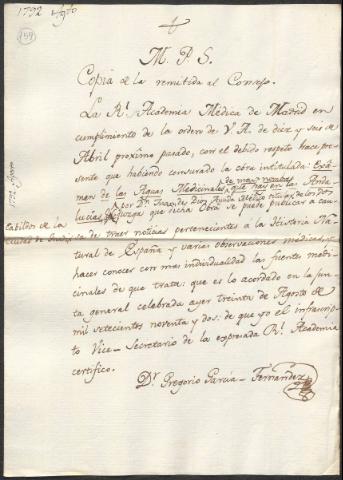 1792 Agto
159
M. P. S.
Copia de la remitida al Consejo.
La Rl. Academia Médica de Madrid en
cumplimiento de la orden de V. A. de diez y seis de
Abril próximo pasado, con el debido respeto hace pre-
sente que habiendo censurado la obra intitulada: Exâ-
men de las Aguas Medicinales de mas nombre
que hay en las Anda-
lucias, por Dn. Juan de Dios Ayuda Médico titular de los Dos
Cabildos de la
ciudad de Guadix
juzga que dicha Obra se puede publicar á cau-
sa de traer noticias pertenecientes á la Historia Na-
tural de España y varias observaciones medicas, y
hacer conocer con mas individualidad las fuentes medi-
cinales de que trata: que es lo acordado en la Jun-
ta general celebrada ayer treinta de Agosto de
mil setecientos noventa y dos: de que yo el infrascrip-
to Vice-Secretario de la expresada Rl. Academia
certifico.
Dr. Gregorio Garcia-Fernandez
1792 Agosto